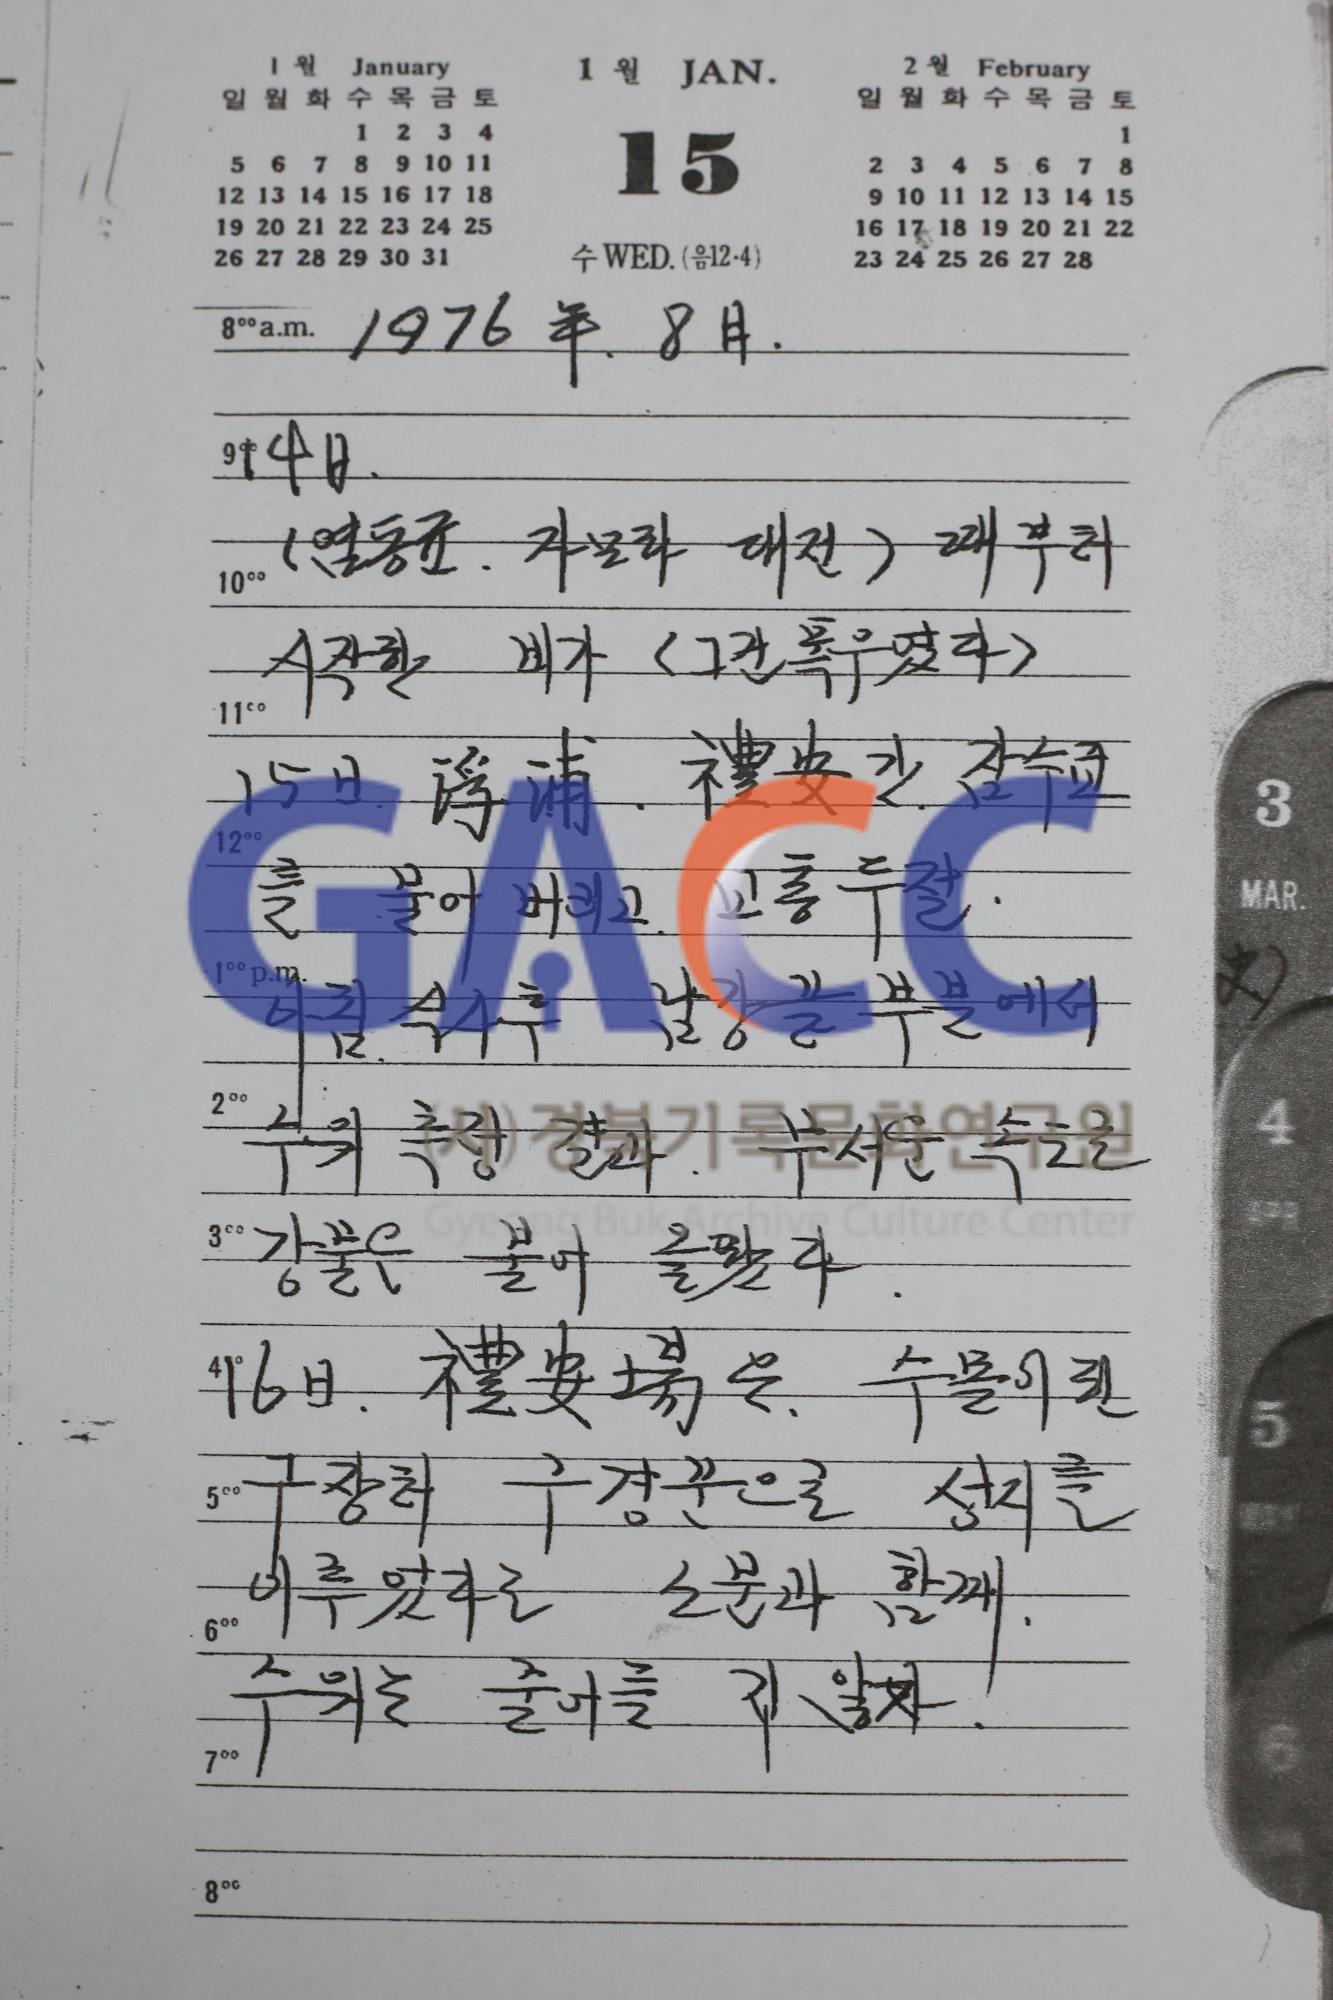 1월 January
일 월 화 수 목 금 토
1 2 3 4
5 6 7 8 9 10 11
12 13 14 15 16 17 18
19 20 21 22 23 24 25
26 27 28 29 30 31
1월 JAN.
15
수 WED. (음12·4)
2월 February
일 월 화 수 목 금 토
1
2 3 4 5 6 7 8
9 10 11 12 13 14 15
16 17 18 19 20 21 22
23 24 25 26 27 28
8⁰⁰a.m. 1976年. 8月.
9 14日.
(염동균. 자모라 대전) 때부터
10⁰⁰
시작한 비가 (그간 폭우였다)
11⁰⁰
15日. 浮浦. 禮安간. 잠수교
12⁰⁰
를 물어 버리고. 교통두절.
1⁰⁰p.m.
아침 식사후 날강끝 부분에서
2⁰⁰ 수위 측정 결과. 무서운 속도로
3⁰⁰ 강물은 불어 올랐다.
4 16日. 禮安場은. 수몰이 된
5⁰⁰ 구장터 구경꾼으로 성시를
이루었다는 소문과 함께.
6⁰⁰
수위는 줄어들
7⁰⁰
8⁰⁰
3
MAR.
4
5
6
GACC
(사) 경북기록문화연구원
Gyeong Buk Archive Culture Center